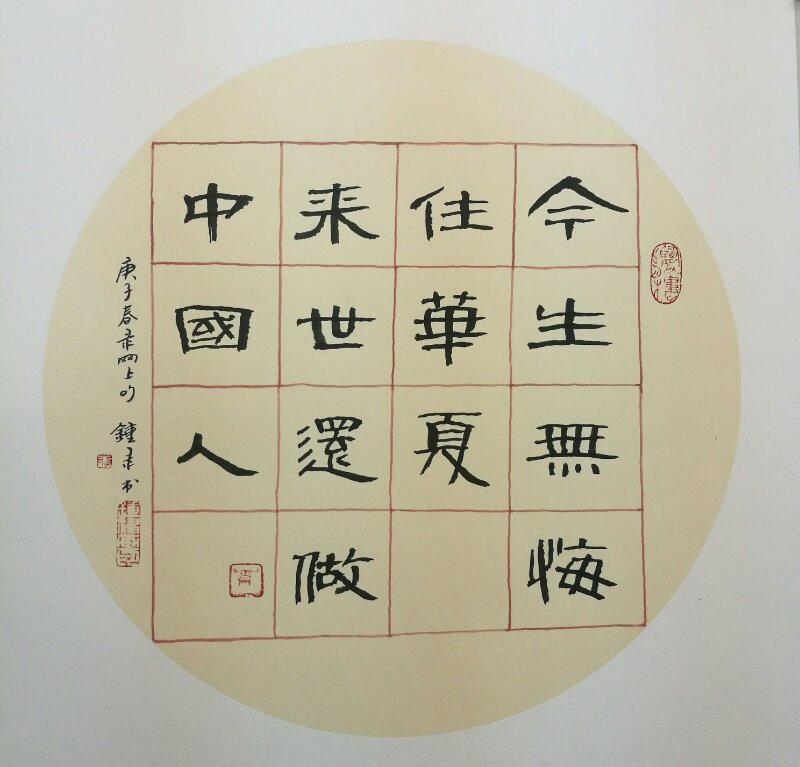 今生無悔
住華夏
来世還做
中國人
庚子春录网上句
鍾录书